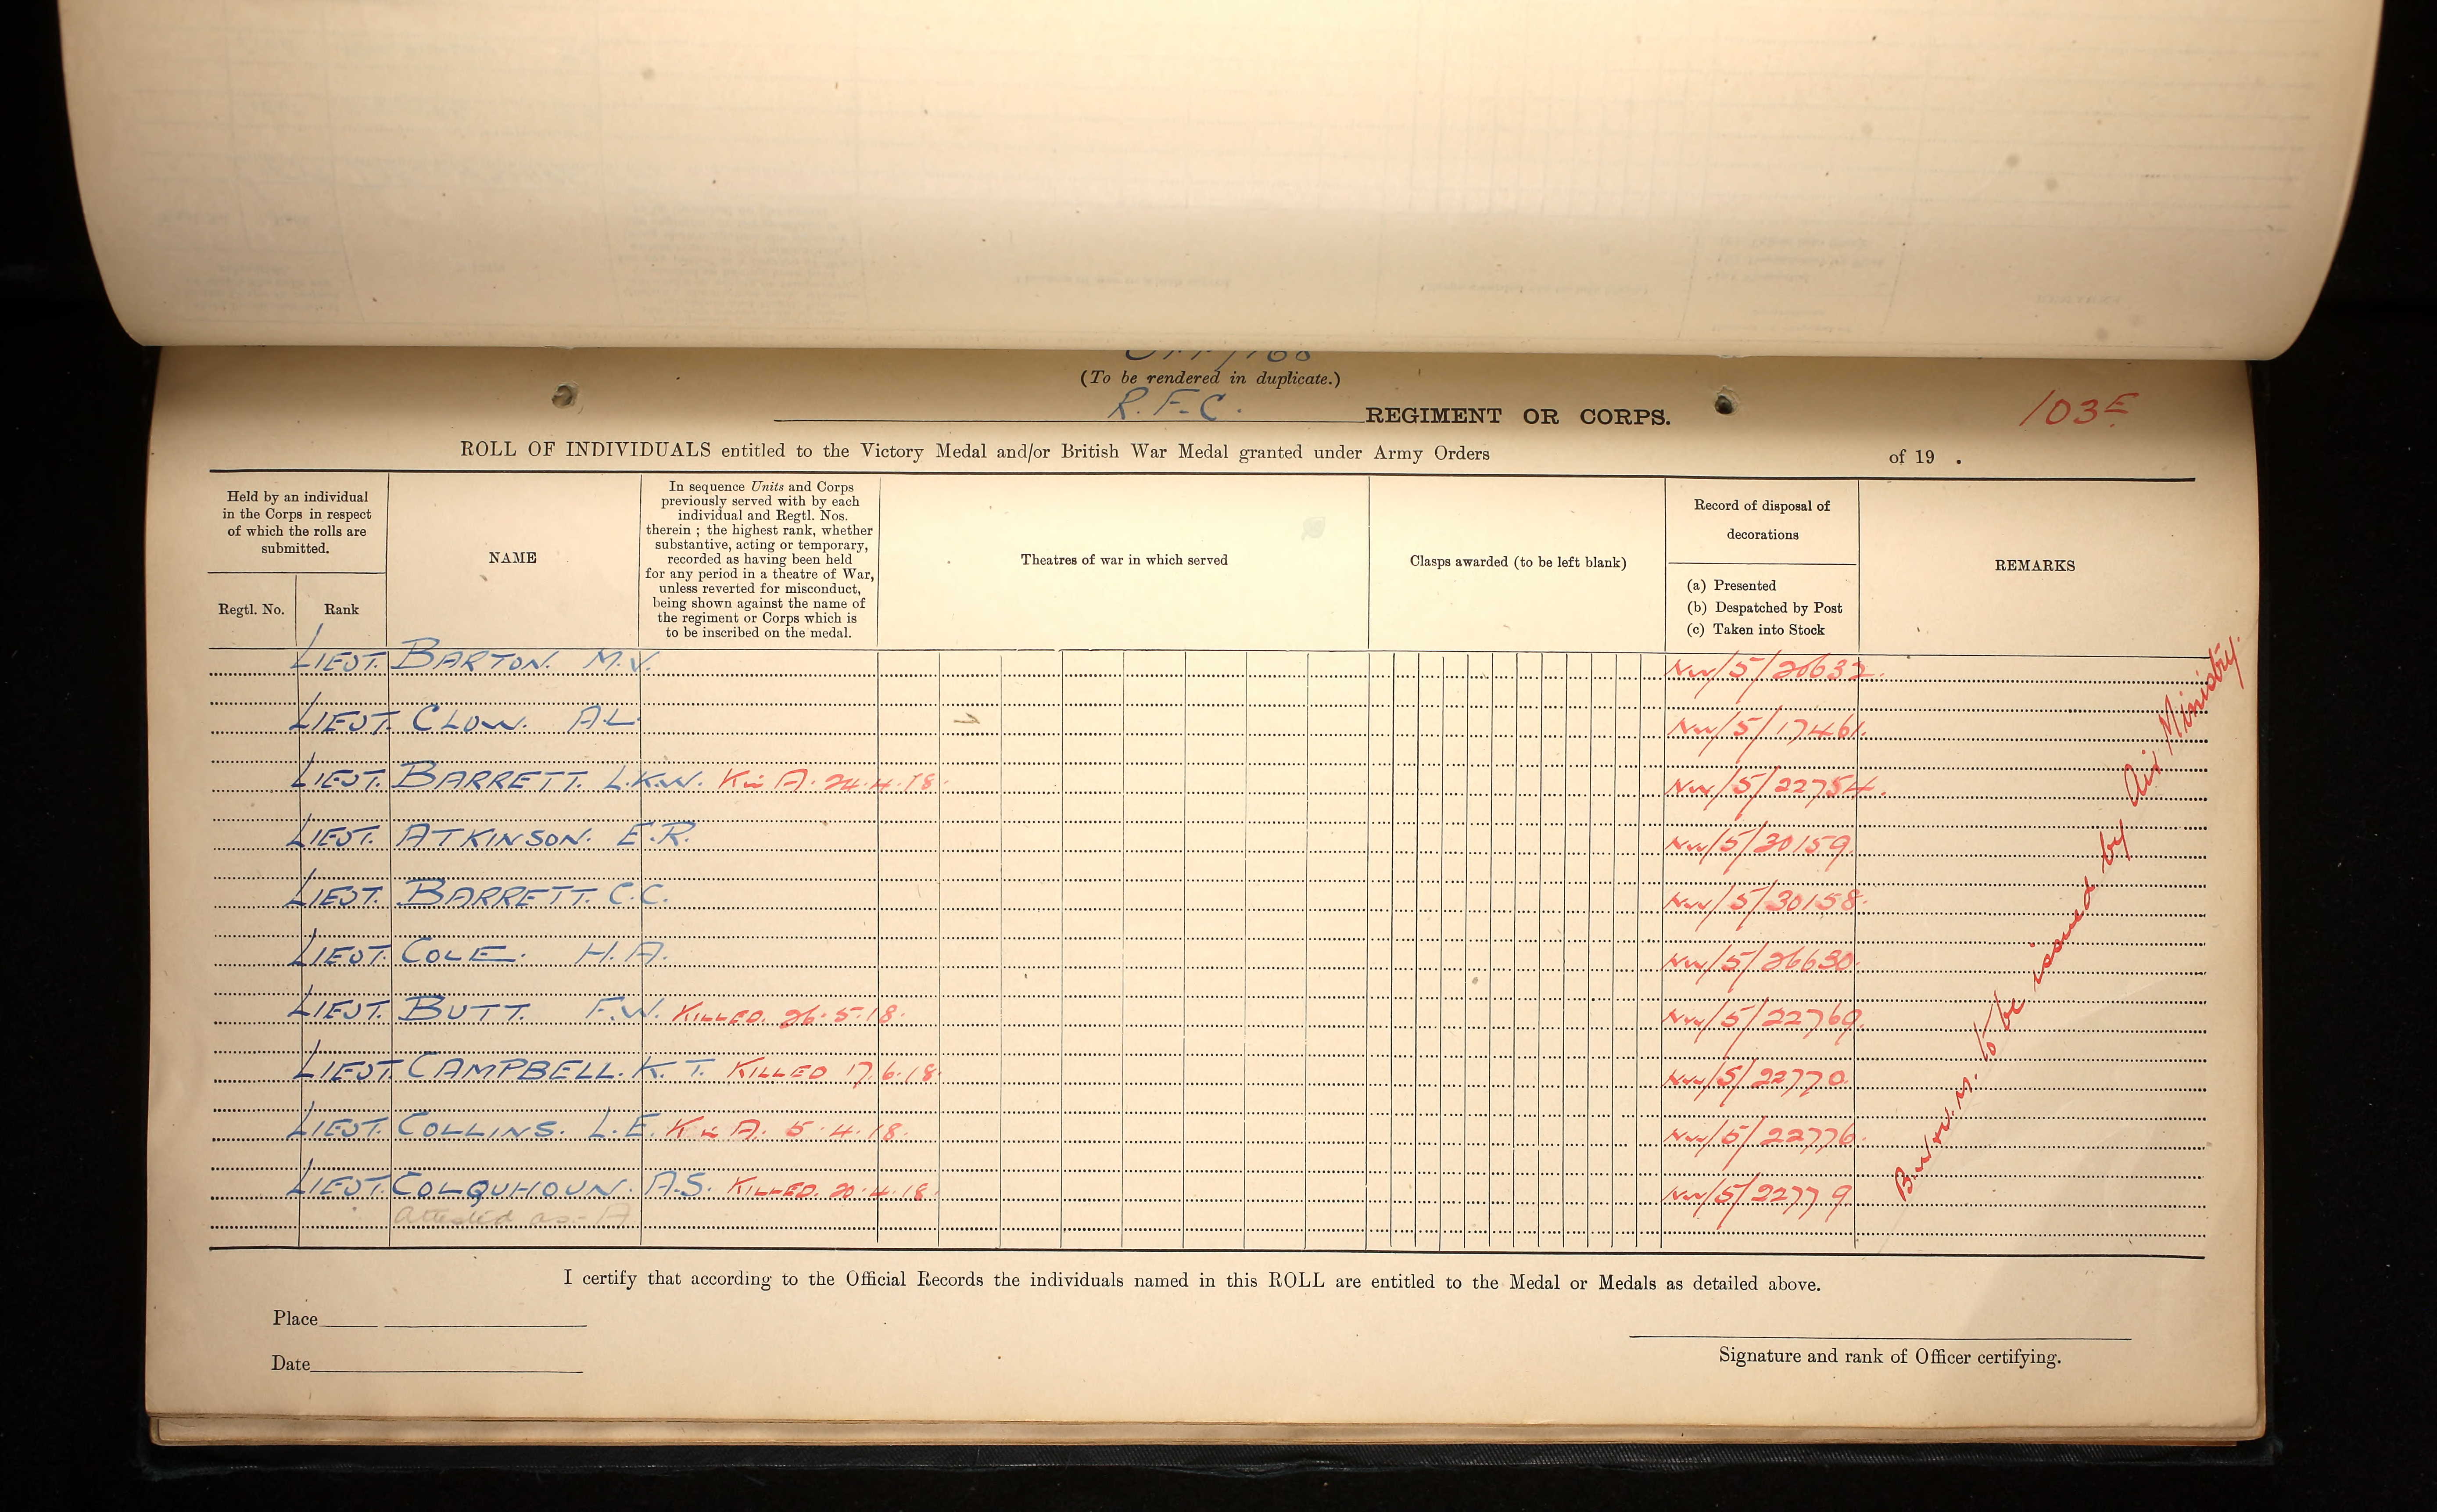 (To be rendered in duplicate.)
R.F.C. REGIMENT OR CORPS. 103E
ROLL OF INDIVIDUALS entitled to the Victory Medal and/or British War Medal granted under Army Orders of 19 .
Held by an individual
in the Corps in respect
of which the rolls are
submitted.
Regtl. No.
Rank
NAME
In sequence Units and Corps
previously served with by each
individual and Regtl. Nos.
therein ; the highest rank, whether
substantive, acting or temporary,
recorded as having been held
for any period in a theatre of War,
unless reverted for misconduct,
being shown against the name of
the regiment or Corps which is
to be inscribed on the medal.
Theatres of war in which served
Clasps awarded (to be left blank)
Record of disposal of
decorations
(a) Presented
(b) Despatched by Post
(c) Taken into Stock
REMARKS
LIEUT. BARTON. M.V. NW/5/20632.
LIEUT. CLOW. A.L. NW/5/17461.
LIEUT. BARRETT. L.K.W. K in A. 24.4.18. NW/5/22754.
LIEUT. ATKINSON. E.R. NW/5/30159.
LIEUT. BARRETT. C.C. NW/5/30158.
LIEUT. COLE. H.A. NW/5/26630.
LIEUT. BUTT. F.W. KILLED. 26.5.18. NW/5/22769.
LIEUT. CAMPBELL. K.T. KILLED 17.6.18. NW/5/22770.
LIEUT. COLLINS. L.E. K in A. 5.4.18. NW/5/22776.
LIEUT. COLQUHOUN. A.S. KILLED. 20.4.18. NW/5/22779
attested as - A
B.War.M. to be issued by Air Ministry.
I certify that according to the Official Records the individuals named in this ROLL are entitled to the Medal or Medals as detailed above.
Place
Date
Signature and rank of Officer certifying.